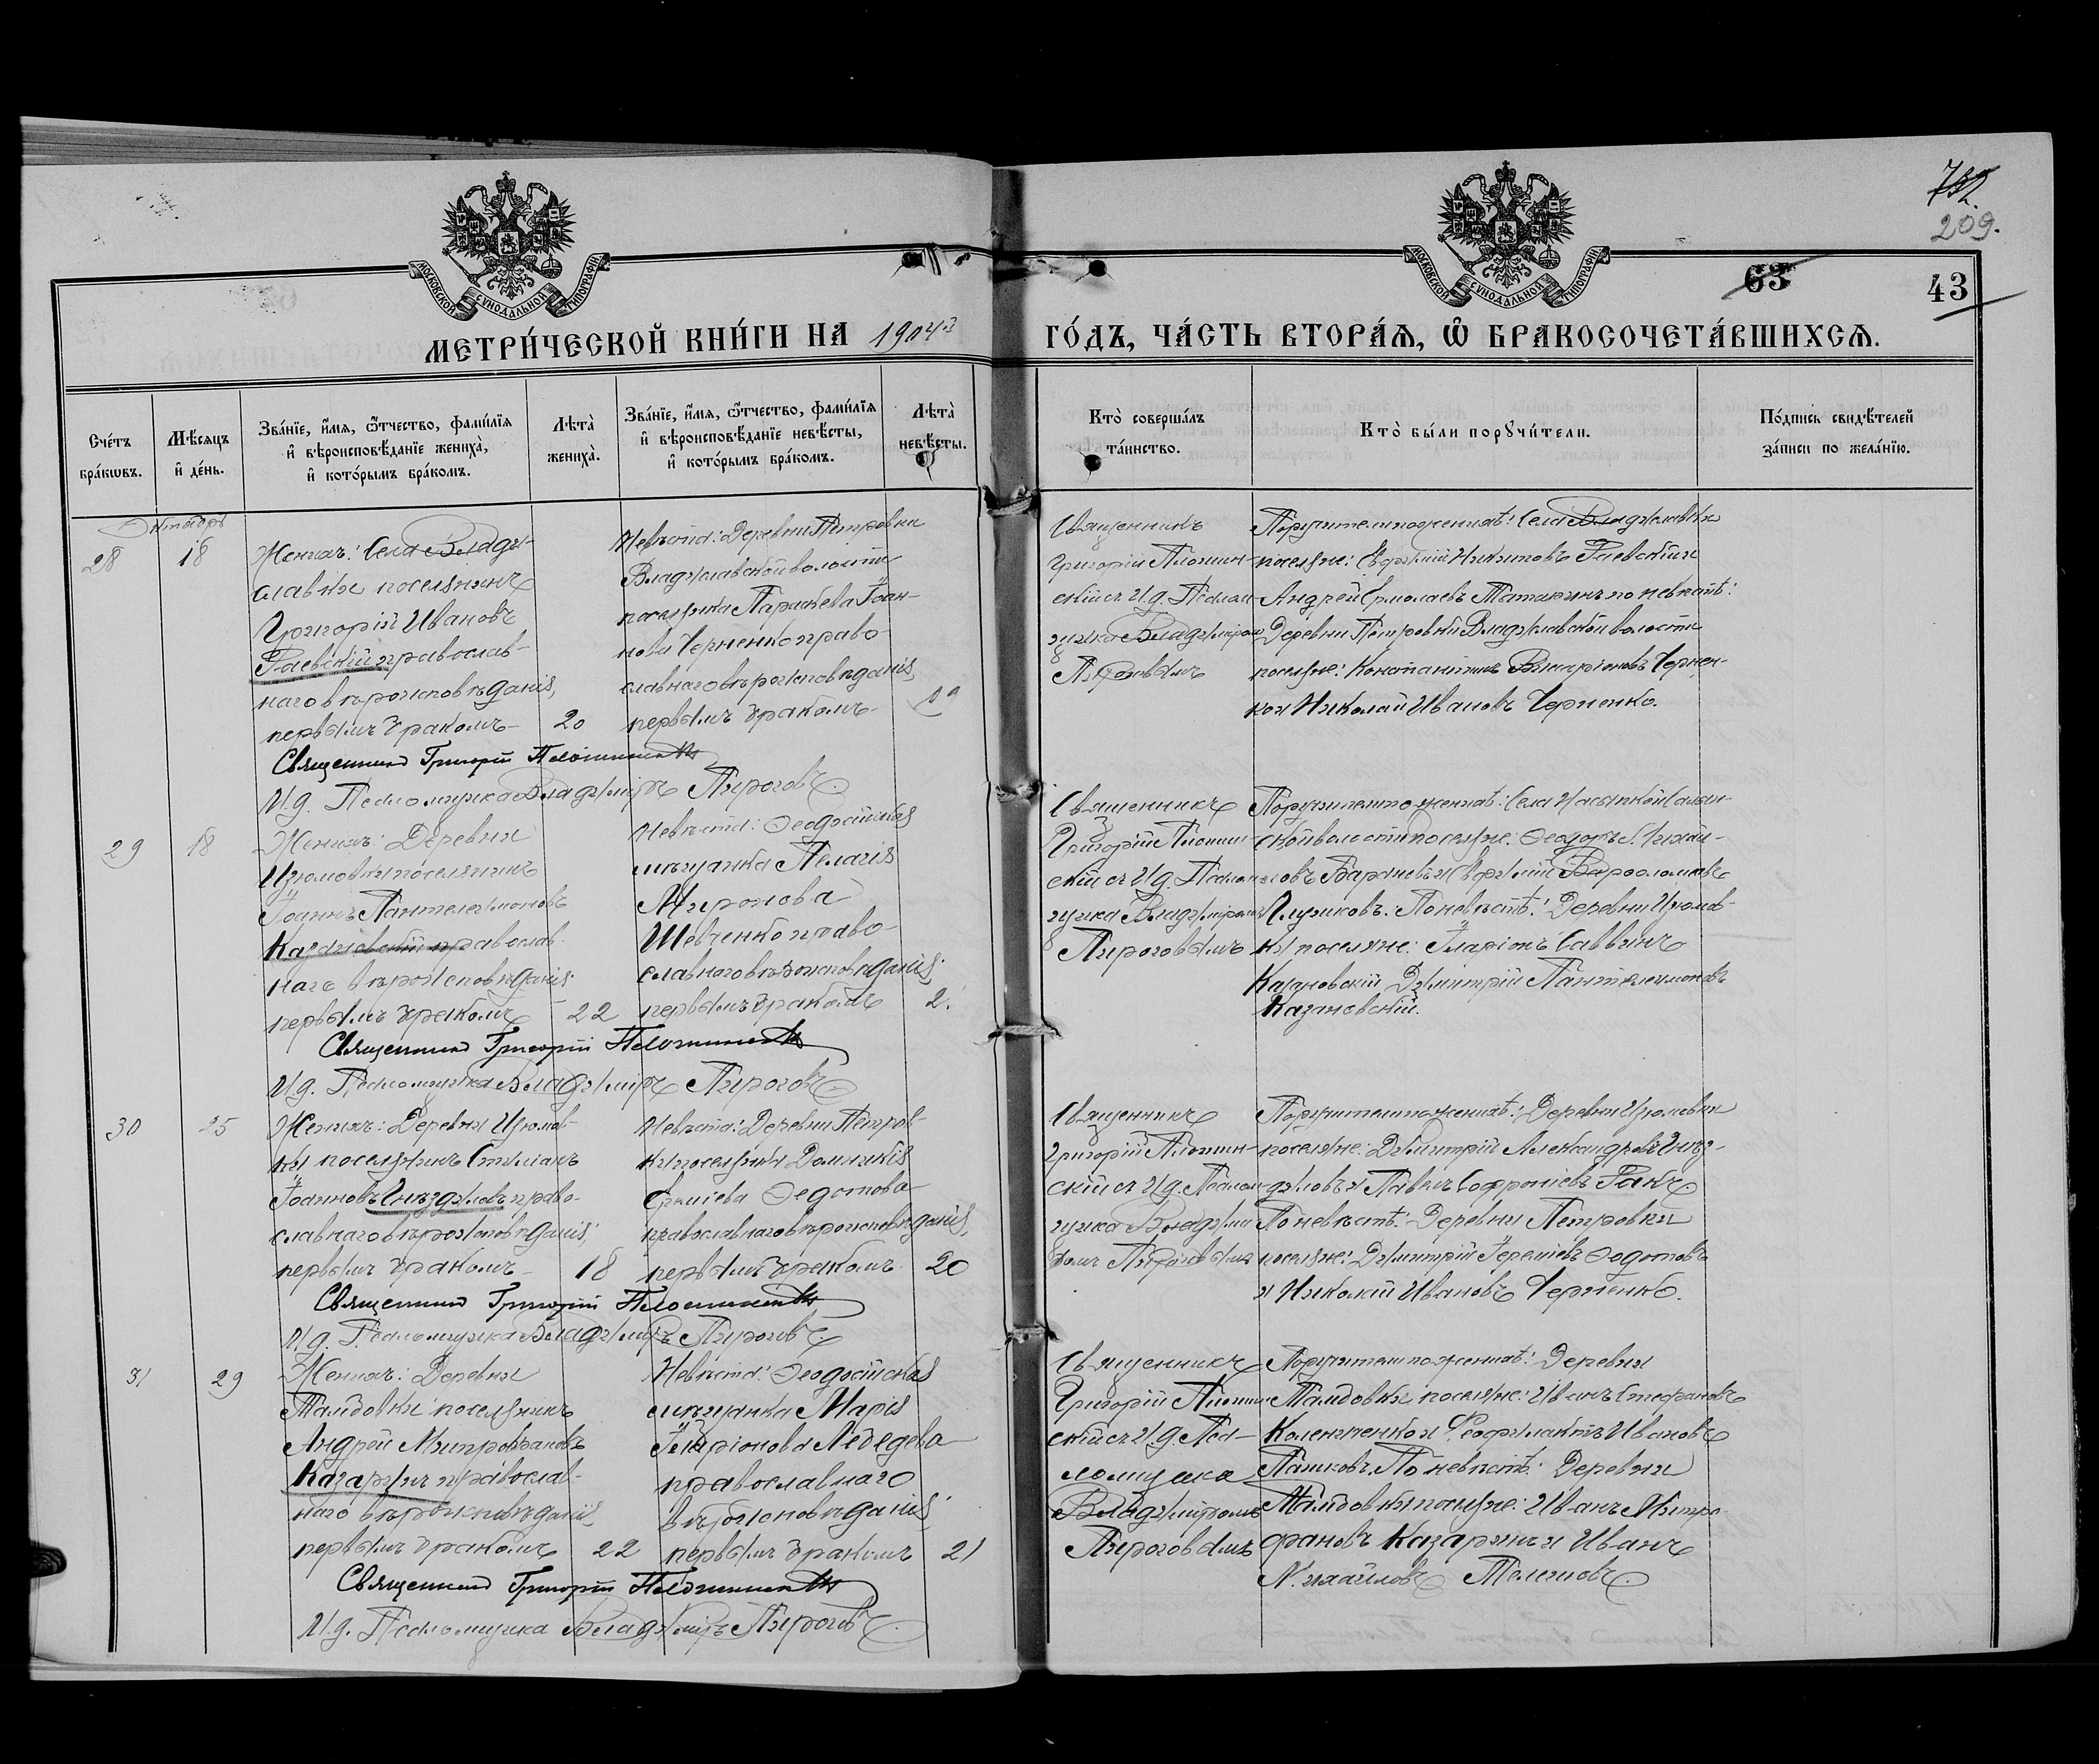 732.
209.
МОСКОВСКОЙ СѴНОДАЛЬНОЙ ТИПОГРАФІИ
МОСКОВСКОЙ СѴНОДАЛЬНОЙ ТИПОГРАФІИ
63
43
МЕТРИ́ЧЕСКОЙ КНИ́ГИ НА 1904й
ГО́ДЪ, ЧА́СТЬ ВТОРА́Ѧ, Ѿ БРАКОСОЧЕТА́ВШИХСѦ.
Сче́тъ бра́кѡвъ.
Мѣ́сѧцъ и҆ де́нь.
Зва́нїе, и҆́мѧ, ѻ҆́тчество, фами́лїѧ и҆ вѣроисповѣ́данїе жениха̀, и҆ кото́рымъ бра́комъ.
Лѣта̀ жениха̀.
Зва́нїе, и҆́мѧ, ѻ҆́тчество, фами́лїѧ и҆ вѣроисповѣ́данїе невѣ́сты, и҆ кото́рымъ бра́комъ.
Лѣта̀ невѣ́сты.
Кто̀ соверша́лъ та́инство.
Кто̀ бы́ли порꙋчи́тели.
По́дпись свидѣ́телей за́писи по жела́нїю.
Октябрь
28
18
Женихъ: Села Влади-
славки поселянинъ
Григорій Ивановъ
Раевскій православ-
наго вѣроисповѣданія,
первымъ бракомъ
20
Невѣста: Деревни Петровки
Владиславской волости
поселянка Параскева Іоан-
нова Черненко право-
славнаго вѣроисповѣданія,
первымъ бракомъ
Священникъ
Григорій
скій съ И.д. Псалом-
щика Владиміромъ
Пироговымъ
Поручители по женихѣ: Села Владиславки
поселяне: Евфимій Никитовъ Раевскій и
Андрей Ермолаевъ Татаринъ по невѣстѣ:
Деревни Петровки Владиславской волости
поселяне: Константинъ Иларіоновъ Чернен-
ко и Николай Ивановъ Черненко.
Священникъ Григорій
И.д. Псаломщика Владиміръ Пироговъ.
29
18
Женихъ: Деревни
Изюмовки поселянинъ
Іоаннъ Пантелеимоновъ
Казановскій православ-
наго вѣроисповѣданія
первымъ бракомъ
22
Невѣста: Ѳеодосійская
мѣщанка Пелагія
Миронова
Шевченко право-
славнаго вѣроисповѣданія
первымъ бракомъ
Священникъ
Григорій
скій съ И.д. Псалом-
щика Владиміромъ
Пироговымъ
Поручители по женихѣ: Села Насыпкой Салын-
ской волости поселяне: Ѳеодоръ Михай-
ловъ и Евфимій Варѳоломеевъ
По невѣстѣ: Деревни Изюмов-
ки поселяне: Иларіонъ Саввинъ
Казановскій Димитрій Пантелеимоновъ
Казановскій.
Священникъ Григорій
И.д. Псаломщика Владиміръ Пироговъ
30
25
Женихъ: Деревни Изюмов-
ки поселянинъ Стиліанъ
Іоанновъ Гнѣздиловъ право-
славнаго вѣроисповѣданія,
первымъ бракомъ
18
Невѣста: Деревни Петров-
ки поселянка Домникія
Ереміева Ѳедотова
православнаго вѣроисповѣданія,
первымъ бракомъ
20
Священникъ
Григорій
скій съ И.д. Псалом-
щика Владимі-
ромъ Пироговымъ
Поручители по женихѣ: Деревни Изюмовки
поселяне: Димитрій Александровъ Гнѣз-
диловъ и Павелъ Софроніевъ Ракъ
По невѣстѣ: Деревни Петровки
поселяне: Димитрій Іереміевъ Ѳедотовъ
и Николай Ивановъ Черненко.
Священникъ Григорій
И.д. Псаломщика Владиміръ Пироговъ
31
29
Женихъ: Деревни
поселянинъ
Андрей Митрофановъ
Казаринъ православ-
наго вѣроисповѣданія,
первымъ бракомъ
22
Невѣста: Ѳеодосійская
мѣщанка Марія
Иларіонова Лебедева
православнаго
вѣроисповѣданія,
первымъ бракомъ
21
Священникъ
Григорій
скій съ И.д. Пса-
ломщика
Владиміромъ
Пироговымъ
Поручители по женихѣ: Деревни
поселяне: Иванъ Стефановъ
и Ѳеофилактъ Ивановъ
Пашковъ. По невѣстѣ: Деревни
поселяне: Иванъ Митро-
фановъ Казаринъ и Иванъ
Михайловъ
Священникъ Григорій
И.д. Псаломщика Владиміръ Пироговъ.